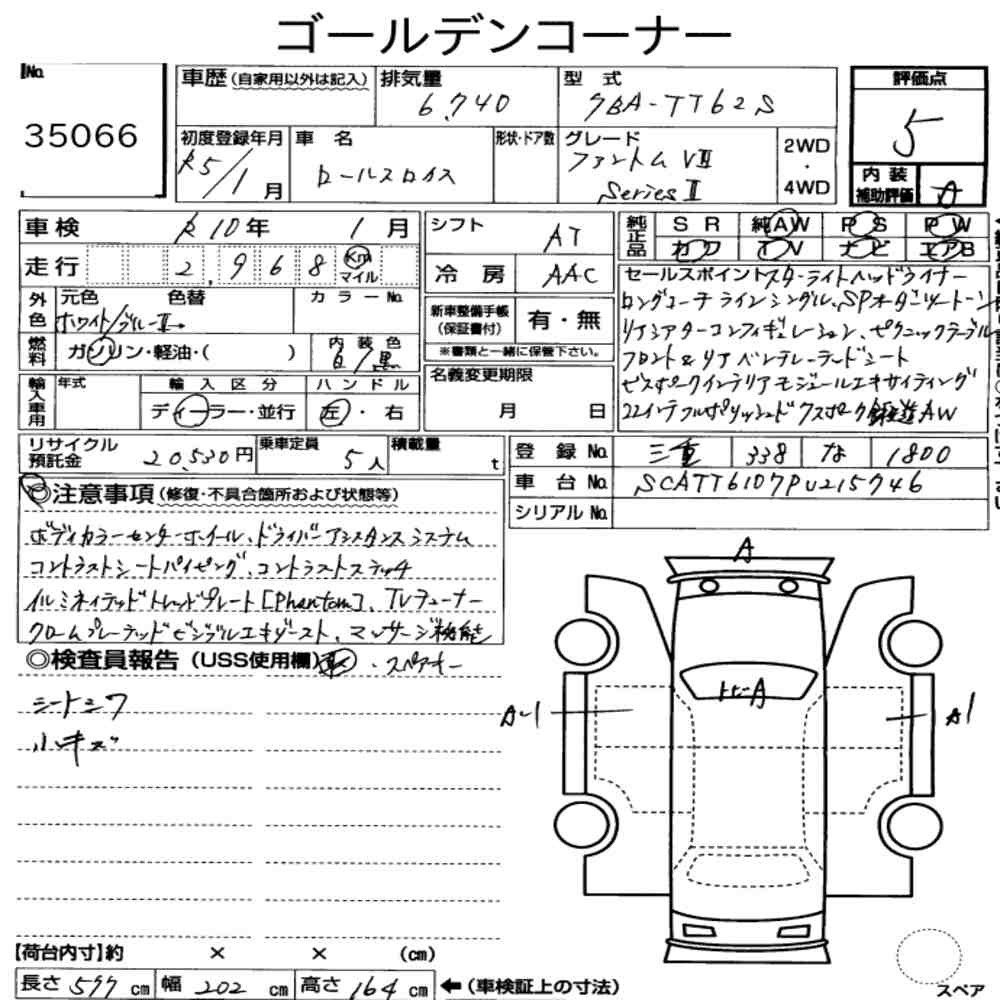 ゴールデンコーナー
No.
35066
車歴 (自家用以外は記入)
排気量
6,740
型 式
7BA-TT62S
評価点
5
内装
補助評価
A
初度登録年月
R5/1 月
車 名
ロールスロイス
形状・ドア数
グレード
ファントム VIII
Series II
2WD
・
4WD
車検
R 10年 1月
走行
2,968
Km
マイル
シフト
AT
冷 房
AAC
純正品
SR 純AW PS PW
カワ TV ナビ エアB
外色
元色 色替
ホワイト/ブルーII→
カラーNo.
燃料
ガソリン・軽油・( )
内装色
白/黒
新車整備手帳
(保証書付)
有・無
※書類と一緒に保管下さい。
セールスポイント スターライトヘッドライナー
ロングコーチラインシングル、SPオーダーツートーン
リアシアターコンフィギュレーション、ピクニックテーブル
フロント&リアベンチレーテッドシート
ビスポークインテリアモジュールエキサイティング
22インチフルポリッシュド 7スポーク鍛造AW
輸入車用
年式
輸入区分
ディーラー・並行
ハンドル
左・右
名義変更期限
月 日
リサイクル
預託金
20,530円
乗車定員
5人
積載量
t
登録No.
三重 338 な 1800
車台No.
SCATT6107PU215746
シリアルNo.
◎注意事項 (修復・不具合箇所および状態等)
ボディカラーセンターホイール、ドライバーアシスタンスシステム
コントラストシートパイピング、コントラストステッチ
イルミネイテッドトレッドプレート [Phantom]、TVチューナー
クロームプレーテッドビジブルエキゾースト、マッサージ機能
◎検査員報告 (USS使用欄)
・スペアキー
シートシワ
小キズ
A
トビ-A
A-1
A1
【荷台内寸】約 × × (cm)
長さ 577 cm 幅 202 cm 高さ 164 cm ←(車検証上の寸法)
スペア